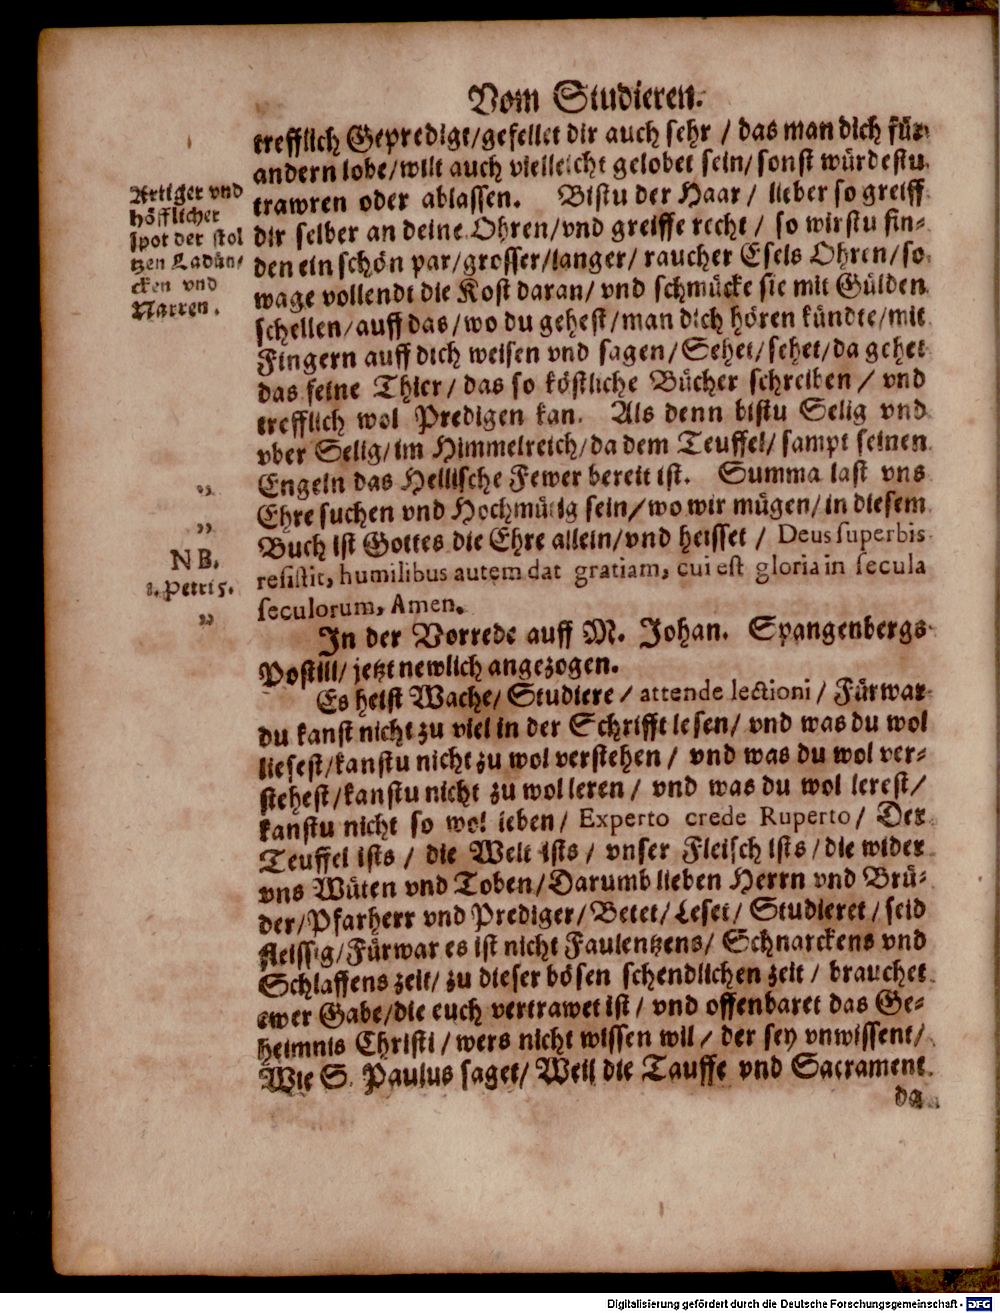 Vom Studieren.
trefflich Gepredigt/gefellet dir auch sehr / das man dich für
andern lobe/wilt auch vielleicht gelobet sein/sonst würdestu
trawren oder ablassen. Bistu der Haar / lieber so greiff
dir selber an deine Ohren/vnd greiffe recht / so wirstu fin-
den ein schön par/grosser/langer/ raucher Esels Ohren/so
wage vollendt die Kost daran/ vnd schmücke sie mit Gülden
schellen/auff das/wo du gehest/man dich hören kündte/mit
Fingern auff dich weisen vnd sagen/Sehet/sehet/da gehet
das feine Thier/ das so köstliche Bücher schreiben / vnd
trefflich wol Predigen kan. Als denn bistu Selig vnd
vber Selig/im Himmelreich/da dem Teuffel/ sampt seinen
Engeln das Hellische Fewer bereit ist. Summa last vns
Ehre suchen vnd Hochmütig sein/wo wir mügen/in diesem
Buch ist Gottes die Ehre allein/vnd heisset / Deus superbis
resistit, humilibus autem dat gratiam, cui est gloria in secula
seculorum, Amen.
In der Vorrede auff M. Johan. Spangenbergs
Postill/ jetzt newlich angezogen.
Es heist Wache/ Studiere / attende lectioni / Fürwar
du kanst nicht zu viel in der Schrifft lesen/ vnd was du wol
liesest/kanstu nicht zu wol verstehen / vnd was du wol ver-
stehest/kanstu nicht zu wol leren / vnd was du wol lerest/
kanstu nicht so wol leben/ Experto crede Ruperto/ Der
Teuffel ists / die Welt ists / vnser Fleisch ists/die wider
vns Wüten vnd Toben/Darumb lieben Herrn vnd Brü-
der/Pfarherr vnd Prediger/Betet/Leset/ Studieret/seid
fleissig/Fürwar es ist nicht Faulentzens/ Schnarckens vnd
Schlaffens zeit/ zu dieser bösen schendlichen zeit / brauchet
ewer Gabe/die euch vertrawet ist / vnd offenbaret das Ge-
heimnis Christi / wers nicht wissen wil / der sey vnwissent/
Wie S. Paulus saget/ Weil die Tauffe vnd Sacrament
da
Artiger vnd
höfflicher
spot der stol
tzen Ladün/
cken vnd
Narren.
"
"
NB.
1. Petri 5.
"
Digitalisierung gefördert durch die Deutsche Forschungsgemeinschaft - DFG